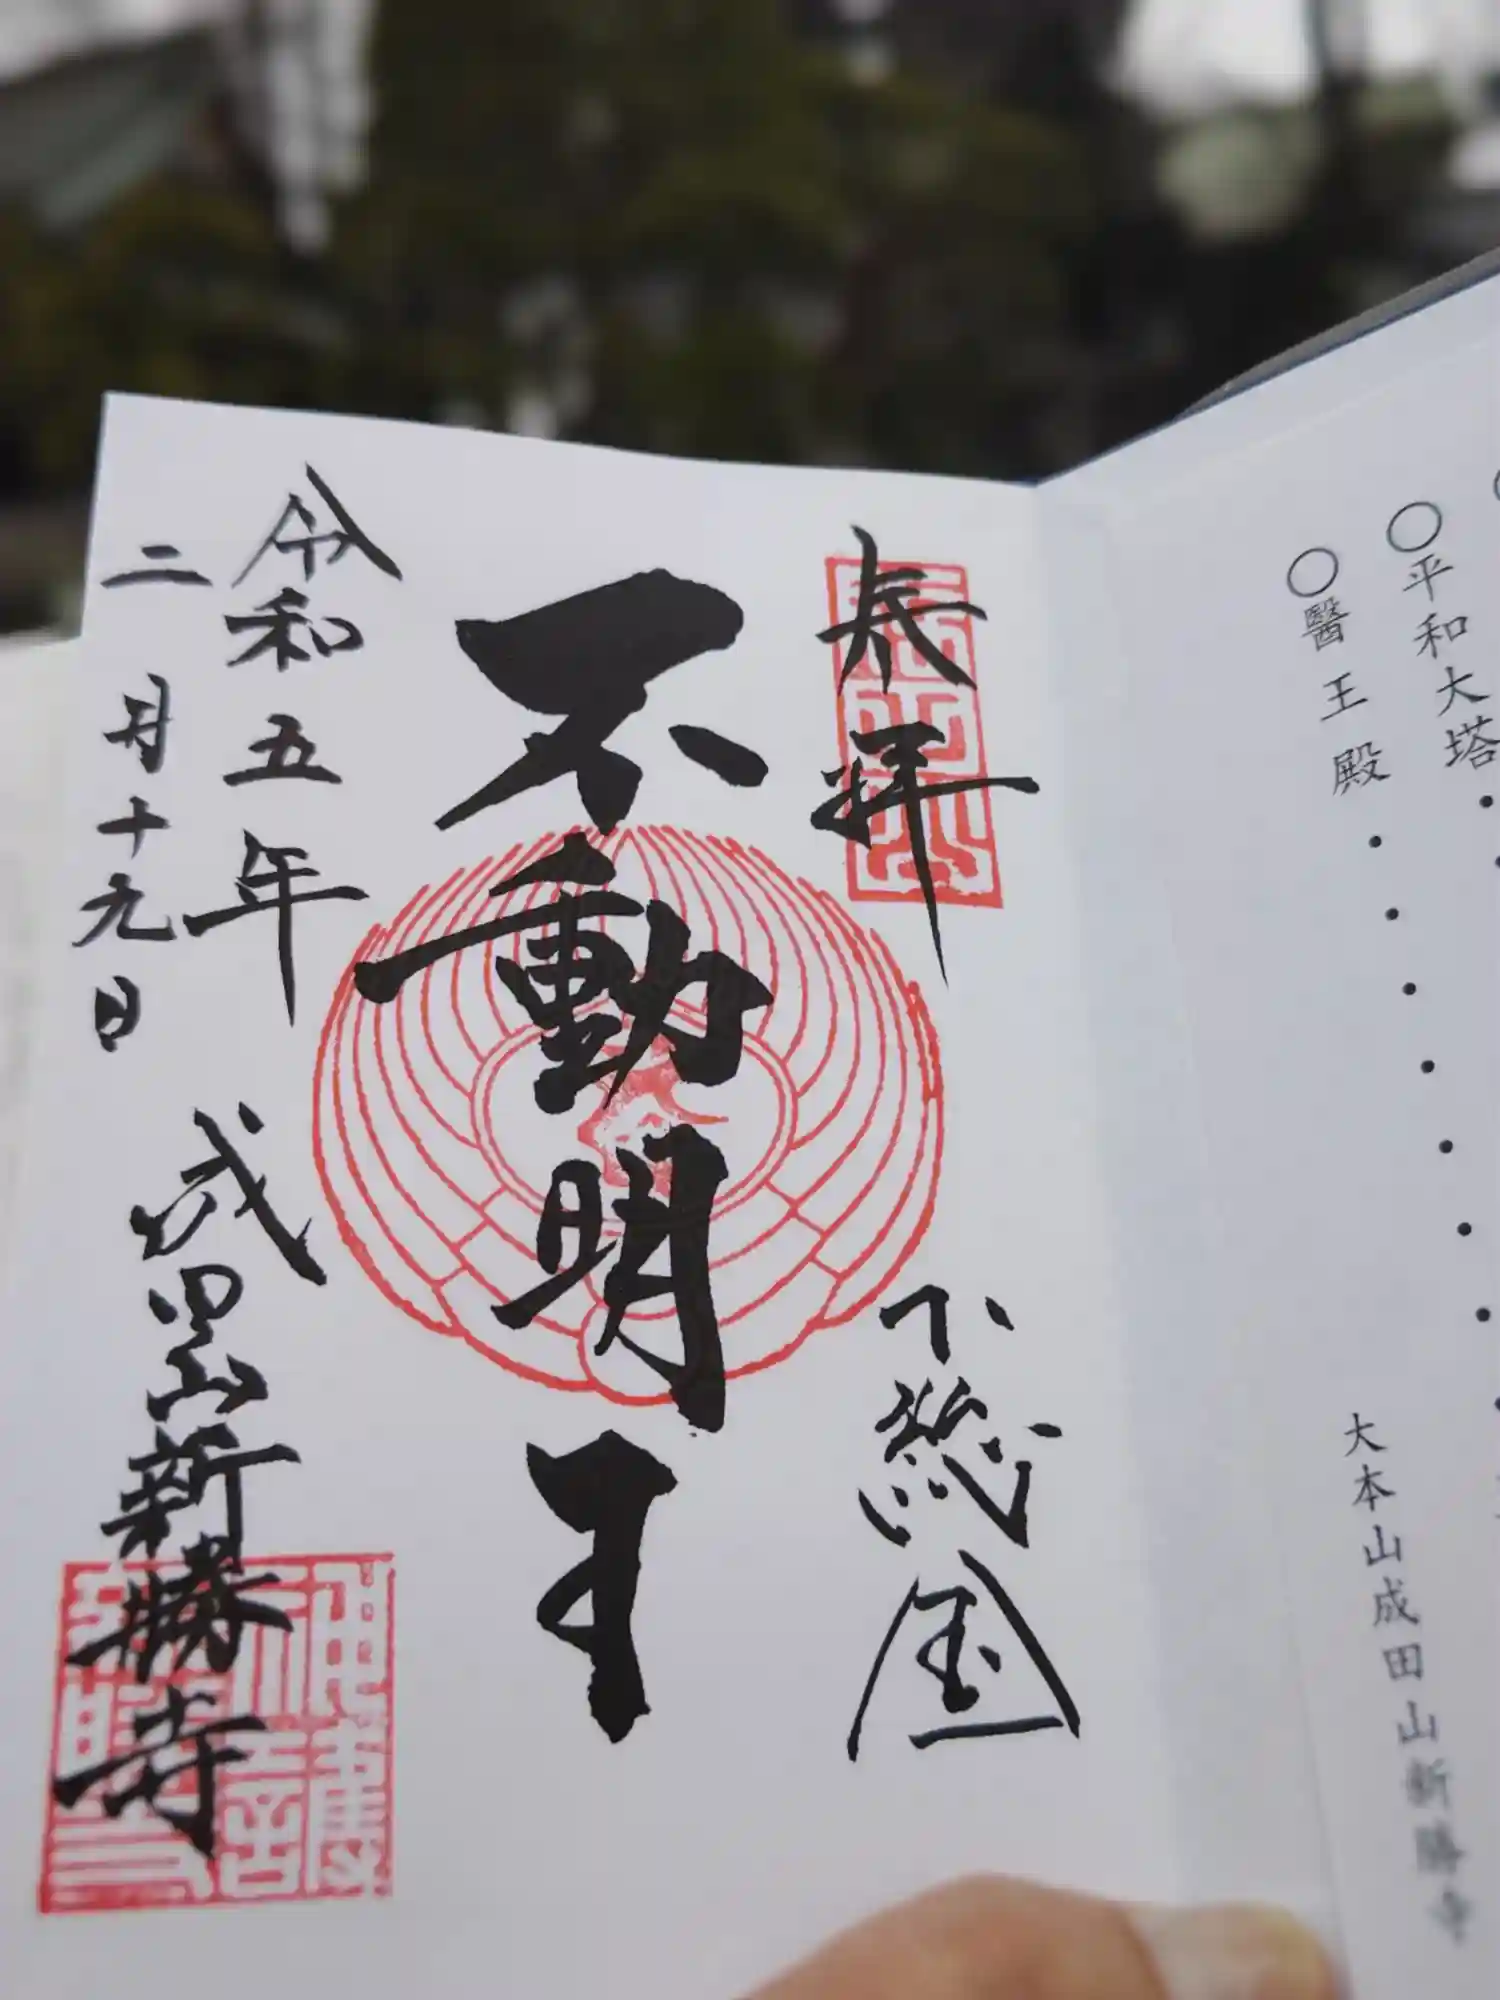 ○平和大塔・・
○醫王殿・・・・・・・
大本山成田山新勝寺
奉拝
下総国
不動明王
令和五年
二月十九日
成田山新勝寺